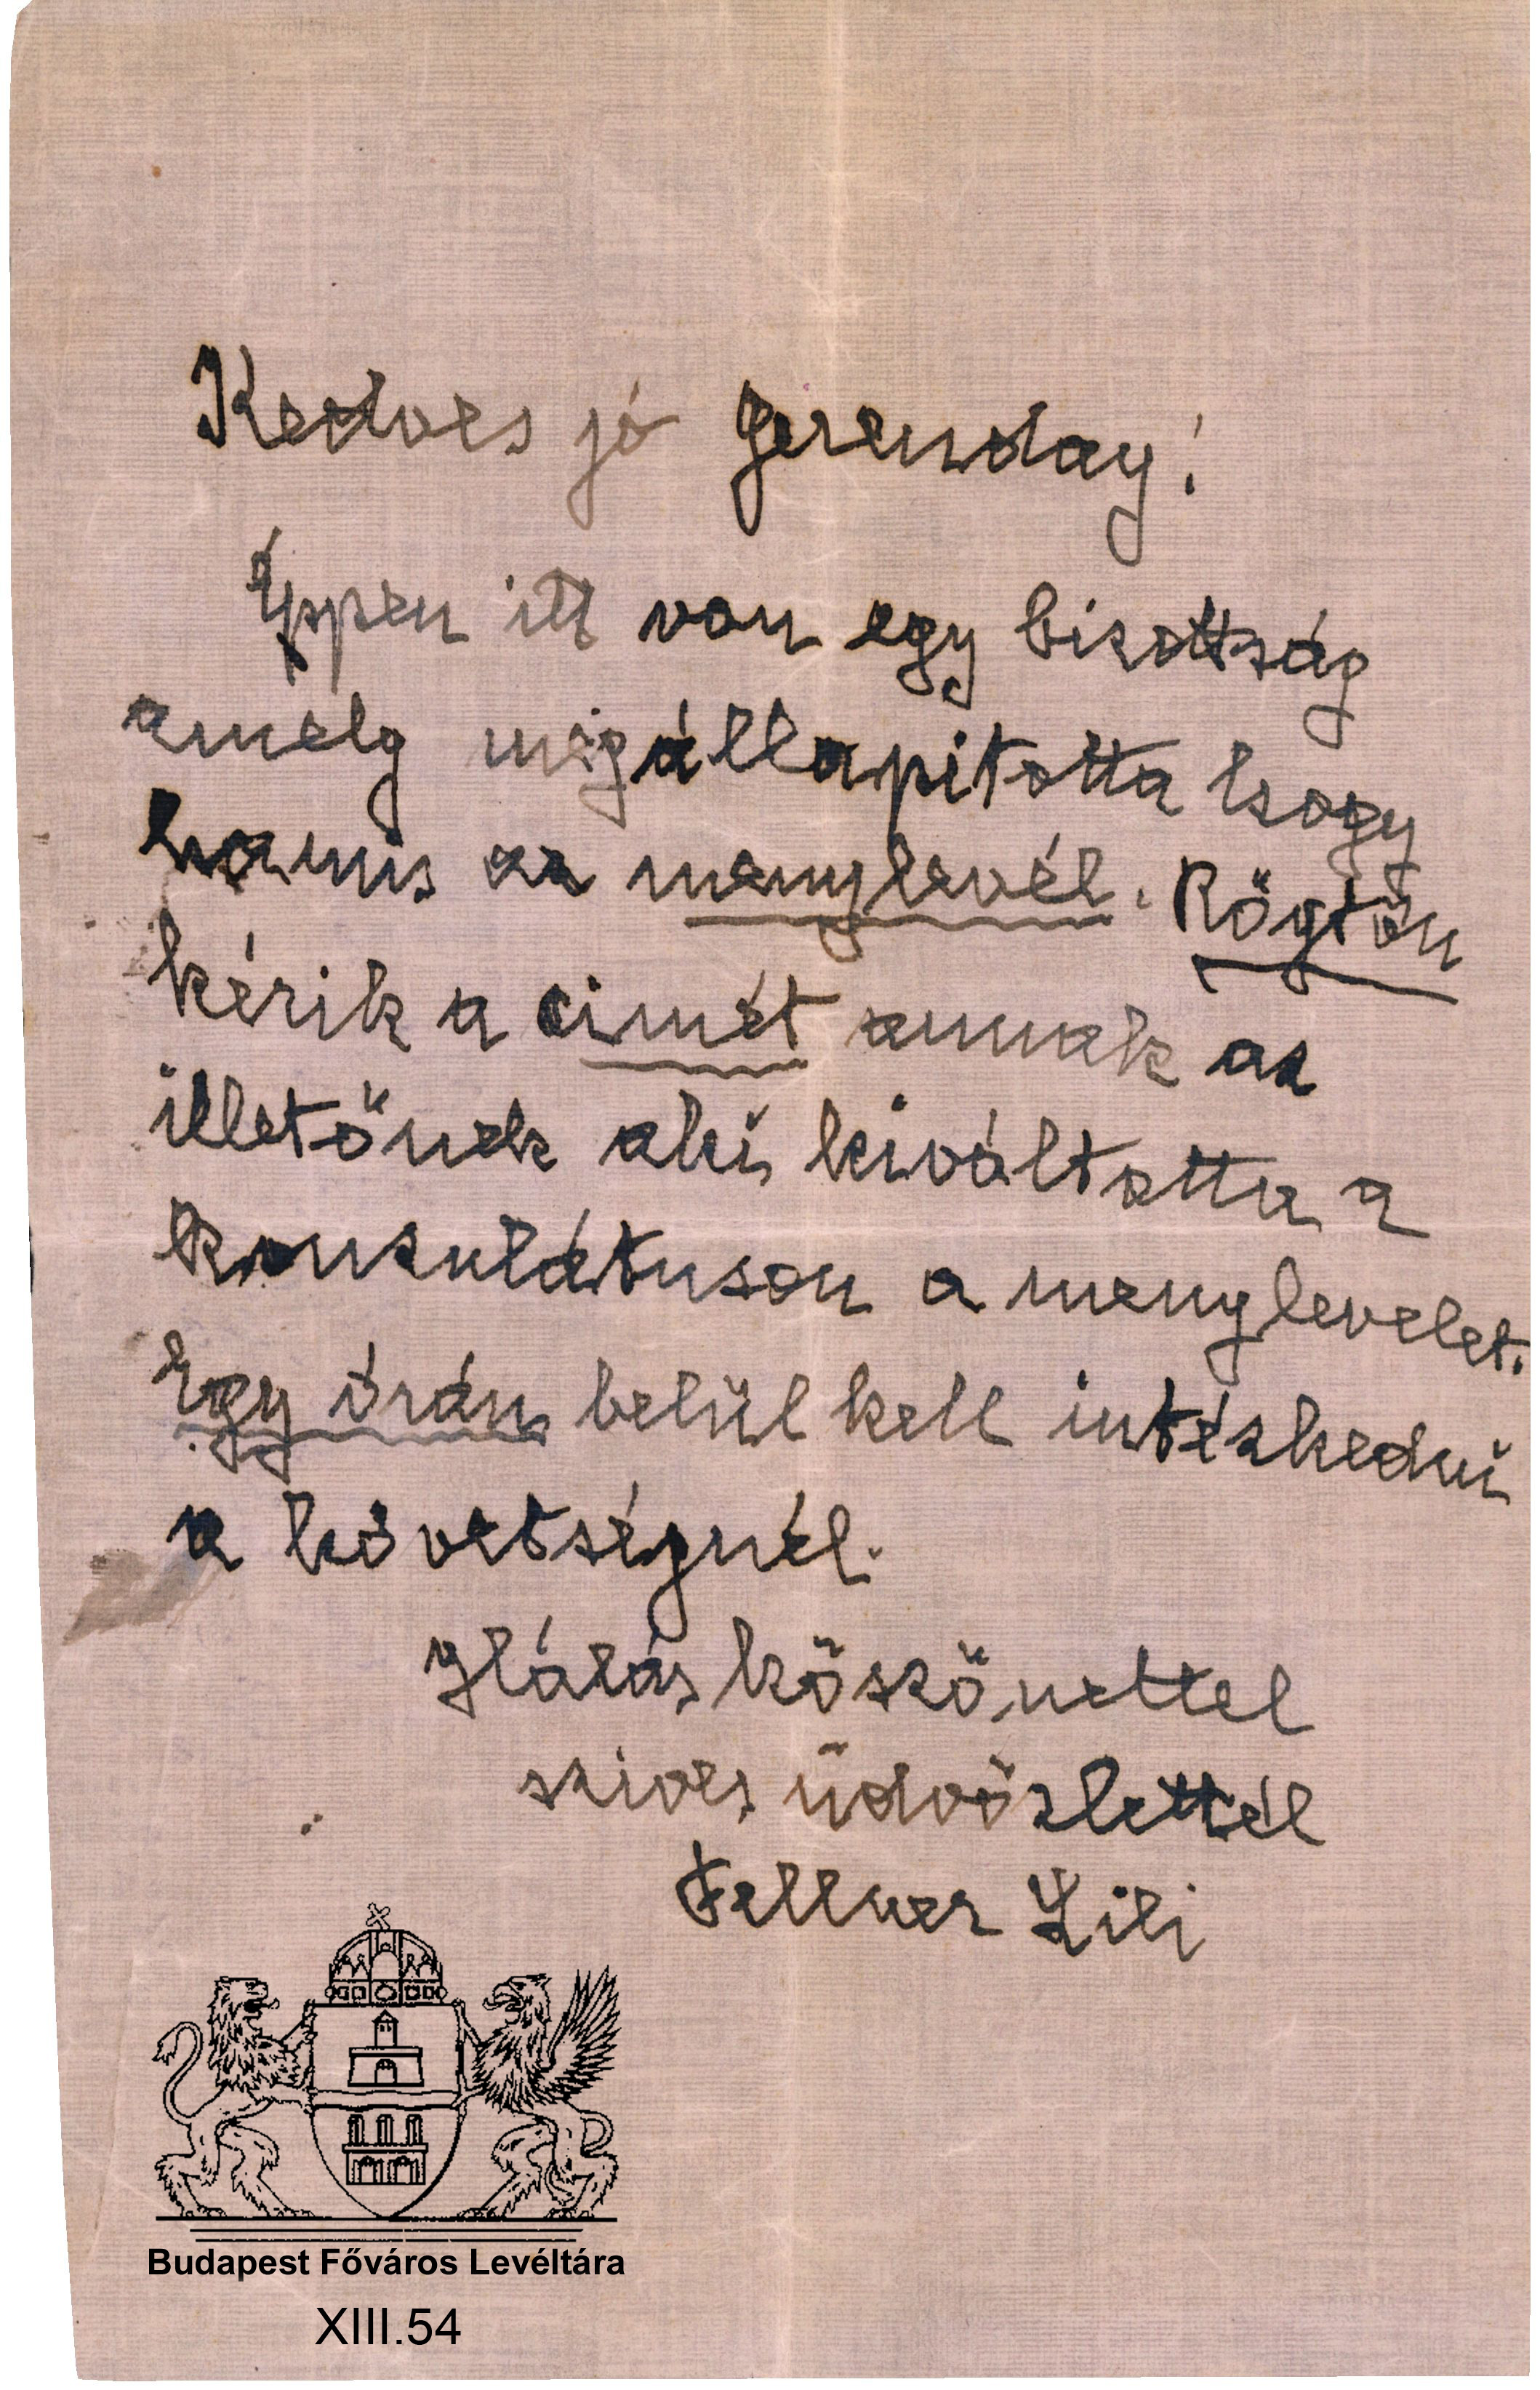 Kedves jó Gerenday!
Éppen itt van egy bizottság
amely megállapitotta hogy
hamis az menylevél. Rögtön
kérik a cimét annak az
illetőnek aki kiváltotta a
konzulátuson a menylevelet.
Egy órán belül kell intézkedni
a követségnél.
Hálás köszönettel
szives üdvözlettel
Fellner Lili
Budapest Főváros Levéltára
XIII.54